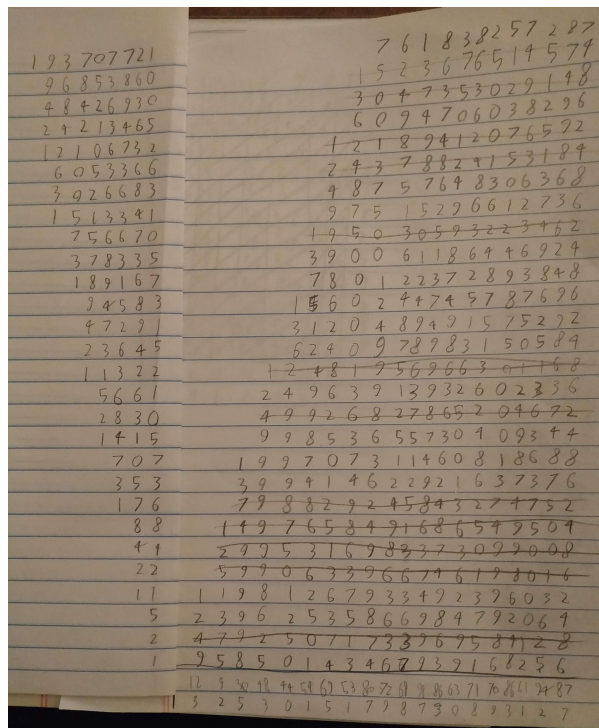 193707721
96853860
48426930
24213465
12106732
6053366
3026683
1513341
756670
378335
189167
94583
47291
23645
11322
5661
2830
1415
707
353
176
88
44
22
11
5
2
1
761838257287
1523676514574
3047353029148
6094706038296
12189412076592
24378824153184
48757648306368
97515296612736
195030593223462
390061186446924
780122372893848
1560244745787696
3120489491575292
6240978983150584
12481956966301168
24963913932602336
49926827865204672
99853655730409344
199707311460818688
399414622921637376
798829245843274752
1497658491686549504
2995316983373099008
5990633966746198016
11981267933492396032
23962535866984792064
47925071733969584128
95850143467939168256
132530151798730893127